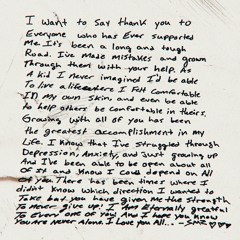 I want to say thank you to
Everyone who has Ever supported
Me. It's been a long and tough
Road. I've made mistakes and grown
Through them with your help. As
A kid I never imagined I'd be able
To love a life where I felt comfortable
IN my own skin, and even be able
to help others be comfortable in theirs.
Growing with all of you has been
the greatest accomplishment in my
Life. I know that I've struggled through
Depression, Anxiety, and just growing up
And I've been able to be open about all
of it and know I could depend on All
of you. There has been times where I
didn't know which direction I wanted to
Take but you have given me the strength
To never give up! I am Eternally grateful
To Every one of you And I hope you know
You are Never Alone. I Love you All... -